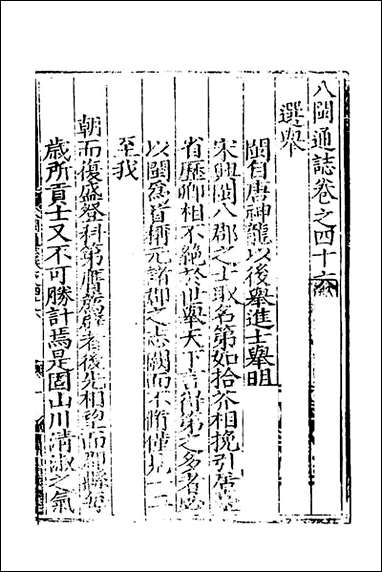 八閩通誌卷之四十六
選舉
閩自唐神龍以後舉進士舉明
宋興閩八郡之士取名第如拾芥相挽引居臺
省歷卿相不絕於世舉天下言得第之多者必
以閩為首稱元諸郡之志闕而不脩僅見一二
至我
朝而復盛登科第膺薦辟者後先相望而郡縣每
歲所貢士又不可勝計焉是固山川清淑之氣